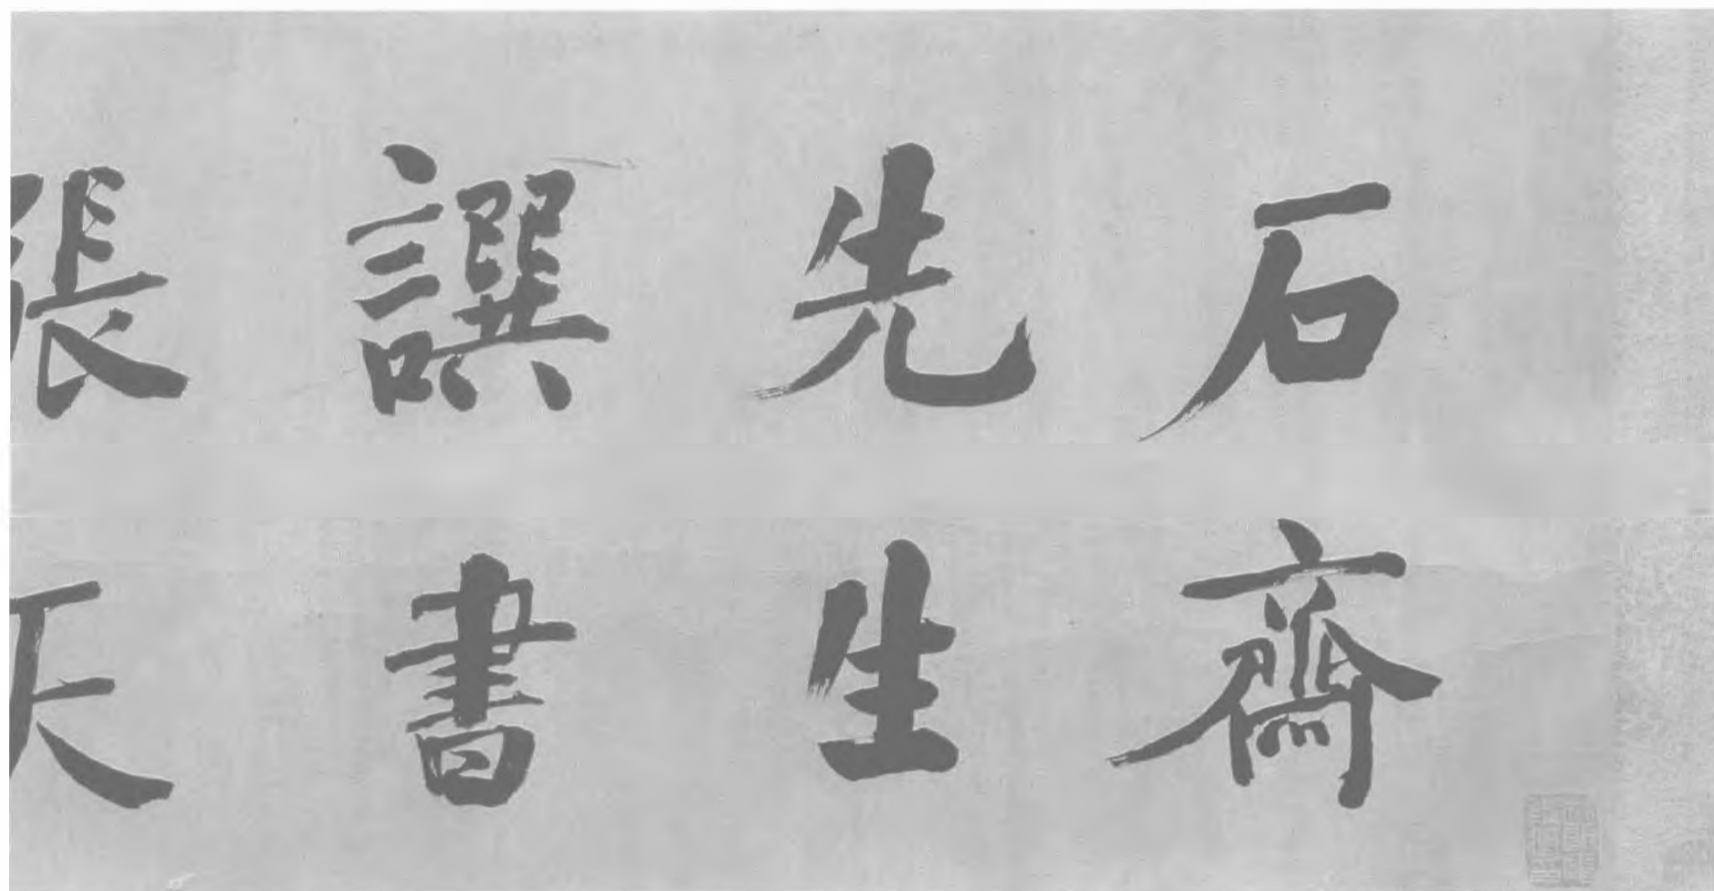 石齋
先生
譔書
張天